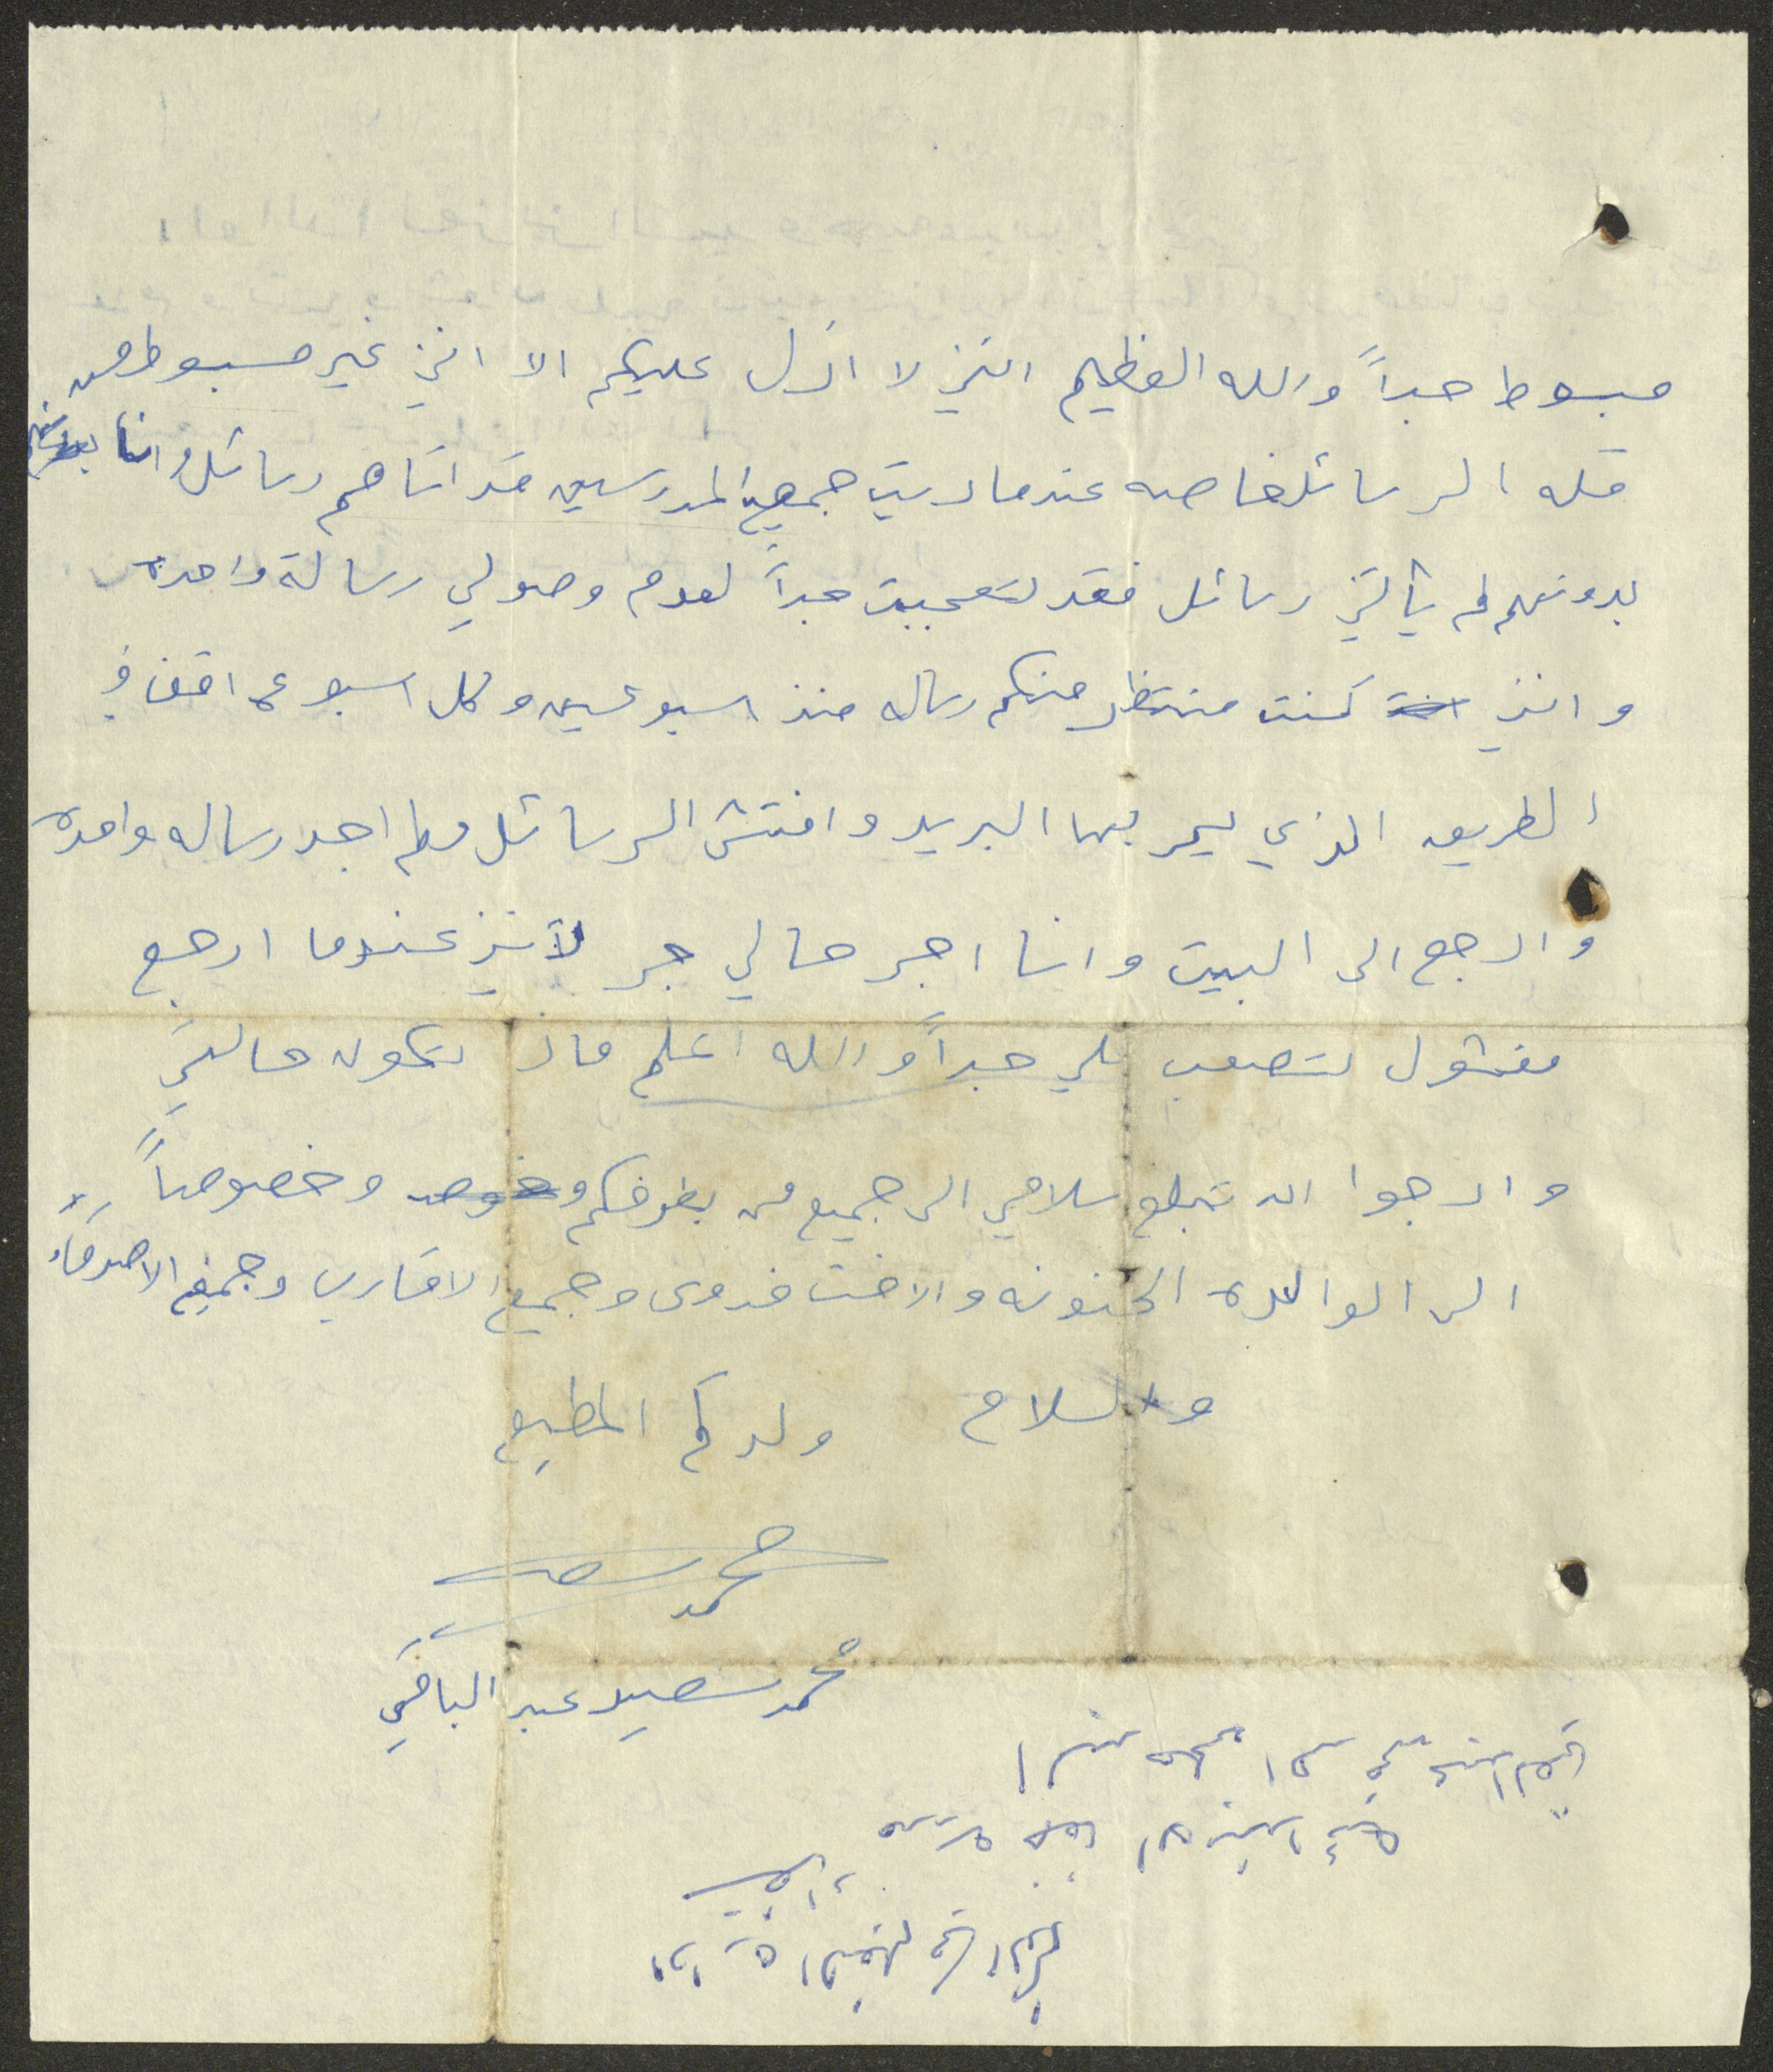 مبسوط جداً والله العظيم انني لا ازل عليكم الا انني غير مبسوط من
قله الرسائل خاصه عندما اريت جميع المدرسين قد اتاهم رسائل وانا
بدونهم لم يأتني رسائل فقد تعجبت جداً لعدم وصولي رسالة واحده
وانني كنت منتظر منكم رساله منذ اسبوعين وكل اسبوع اقف في
الطريق الذي يمر بها البريد وافتش الرسائل ولم اجد رساله واحده
وارجع الى البيت وانا اجر حالي جر لأنني عندما ارجع
مفشول تصعب علي جداً والله اعلم ماذ تكون حالتي
وارجوا ان تبلغ سلامي الى جميع من بطرفكم وخصوصاً
الى الوالده الحنونه والاخت فدوى وجميع الاقارب وجميع الاصدقاء
والسلام ولدكم المطيع
محمد سعيد
محمد سعيد عبد الباقي